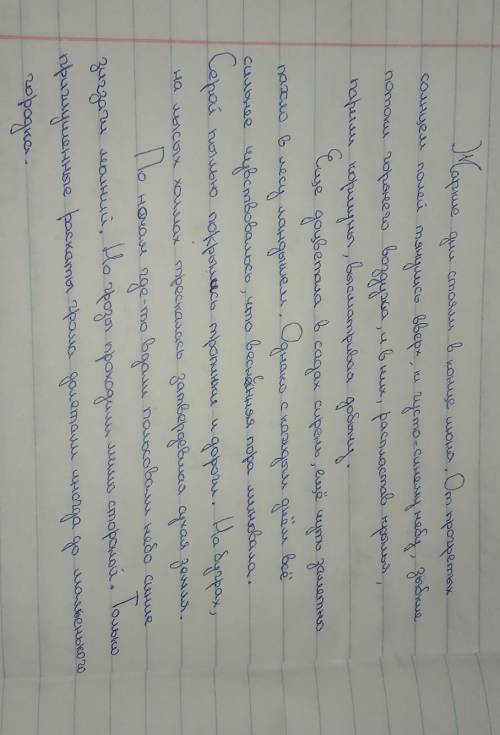 Жаркие дни стояли в конце июня. От прогретых
солнцем полей тянулись вверх, к густо-синему небу, зыбкие
потоки горячего воздуха, и в них, распластав крылья,
парили коршуны, высматривая добычу.
Ещё доцветала в садах сирень, ещё чуть заметно
пахло в лесу ландышем. Однако с каждым днём всё
сильнее чувствовалось, что весенняя пора миновала.
Серой пылью покрылись тропинки и дороги. На буграх,
на лысых холмах трескалась затвердевшая сухая земля.
По ночам где-то вдали полосовали небо синие
зигзаги молний. Но грозы проходили мимо стороной. Только
приглушенные раскаты грома долетали иногда до маленького
городка.